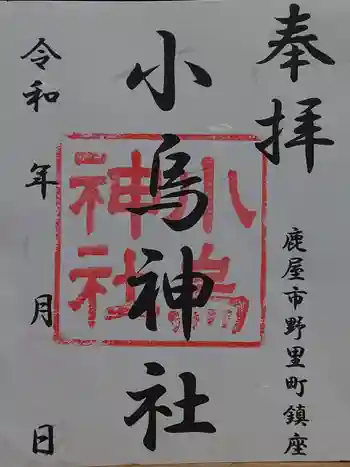 奉拝
鹿屋市野里町鎮座
小烏神社
小烏神社
令和 年 月 日